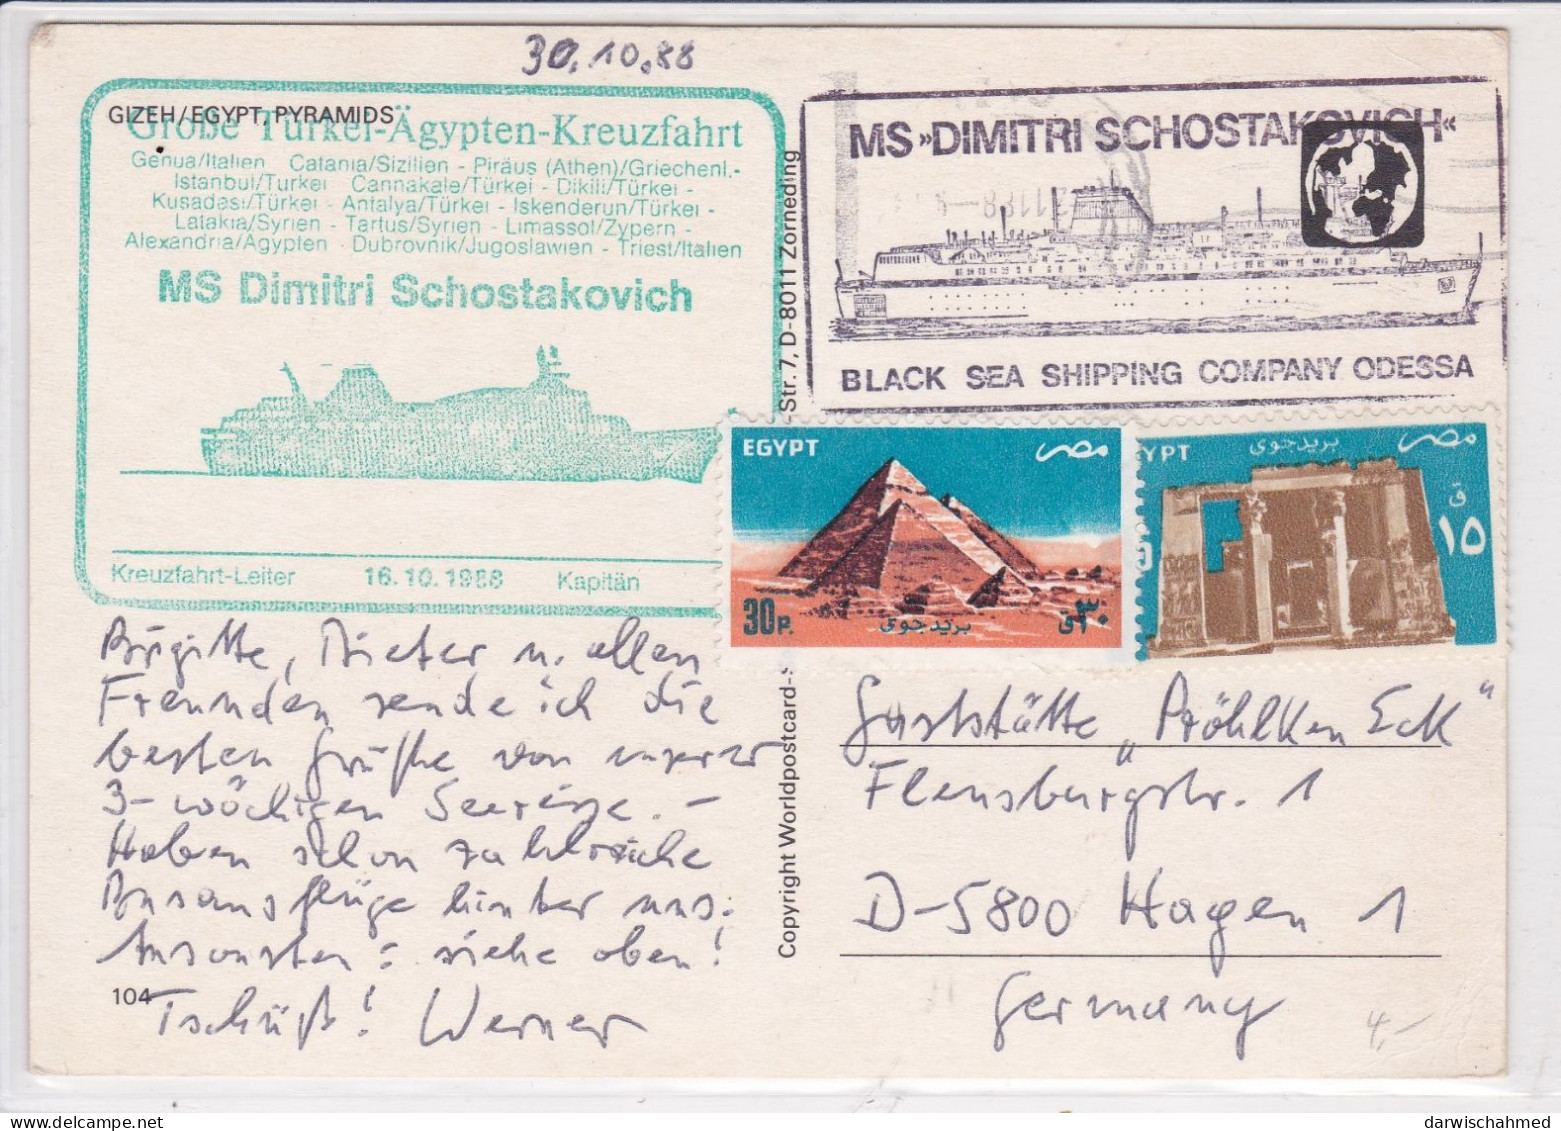 30.10.88
GIZEH/EGYPT, PYRAMIDS
Große Türkei-Ägypten-Kreuzfahrt
Genua/Italien Catania/Sizilien - Piräus (Athen)/Griechenl.-
Istanbul/Türkei Cannakale/Türkei - Dikili/Türkei -
Kusadasi/Türkei - Antalya/Türkei - Iskenderun/Türkei -
Latakia/Syrien - Tartus/Syrien - Limassol/Zypern -
Alexandria/Ägypten - Dubrovnik/Jugoslawien - Triest/Italien
MS Dimitri Schostakovich
Kreuzfahrt-Leiter 16.10.1988 Kapitän
MS »DIMITRI SCHOSTAKOVICH«
BLACK SEA SHIPPING COMPANY ODESSA
EGYPT مصر
30 P. بريد جوى ٣٠ ق
YPT بريد جوى مصر
ق ١٥
Birgitte, Dieter u. allen
Freunden sende ich die
besten Grüße von unserer
3-wöchigen Seereise. -
Haben schon zahlreiche
Ausflüge hinter uns.
Ansonsten = siehe oben!
Tschüß! Werner
104
Copyright Worldpostcard-S
Str. 7, D-8011 Zorneding
Gaststätte „Pröhlken Eck"
Flensburgstr. 1
D-5800 Hagen 1
Germany
4,-
darwischahmed